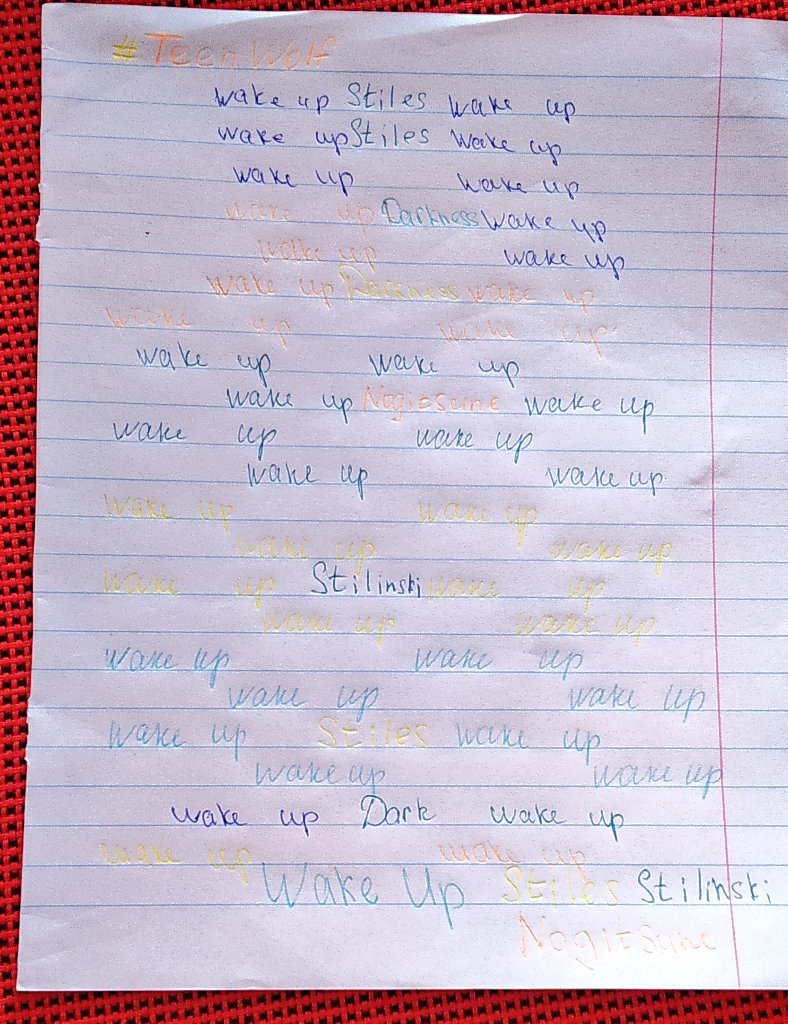 # Teen Wolf
wake up Stiles wake up
wake up Stiles wake up
wake up wake up
wake up Darkness wake up
wake up wake up
wake up Darkness wake up
wake up wake up
wake up wake up
wake up Nogitsune wake up
wake up wake up
wake up wake up
wake up wake up
wake up wake up
wake up Stilinski wake up
wake up wake up
wake up wake up
wake up wake up
wake up Stiles wake up
wake up wake up
wake up Dark wake up
wake up wake up
Wake Up Stiles Stilinski
Nogitsune